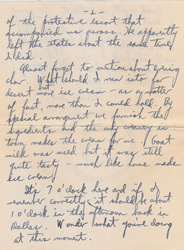 - 2 -
of the protective escort that
accompanied us across. He apparently
left the states about the same time
I did.
Almost forgot to mention about evening
chow. What should I run into for
desert but ice cream - as a matter
of fact, more than I could hold. By
special arrangement we furnish the
ingredients and the only creamery in
town makes the cream for us. Goat
milk was used but it was still
quite tasty - much like some made
ice cream!
It's 7 o'clock here and if I
remember correctly it should be about
10 o'clock in the afternoon back in
Dallas. Wonder what you're doing
at this moment.